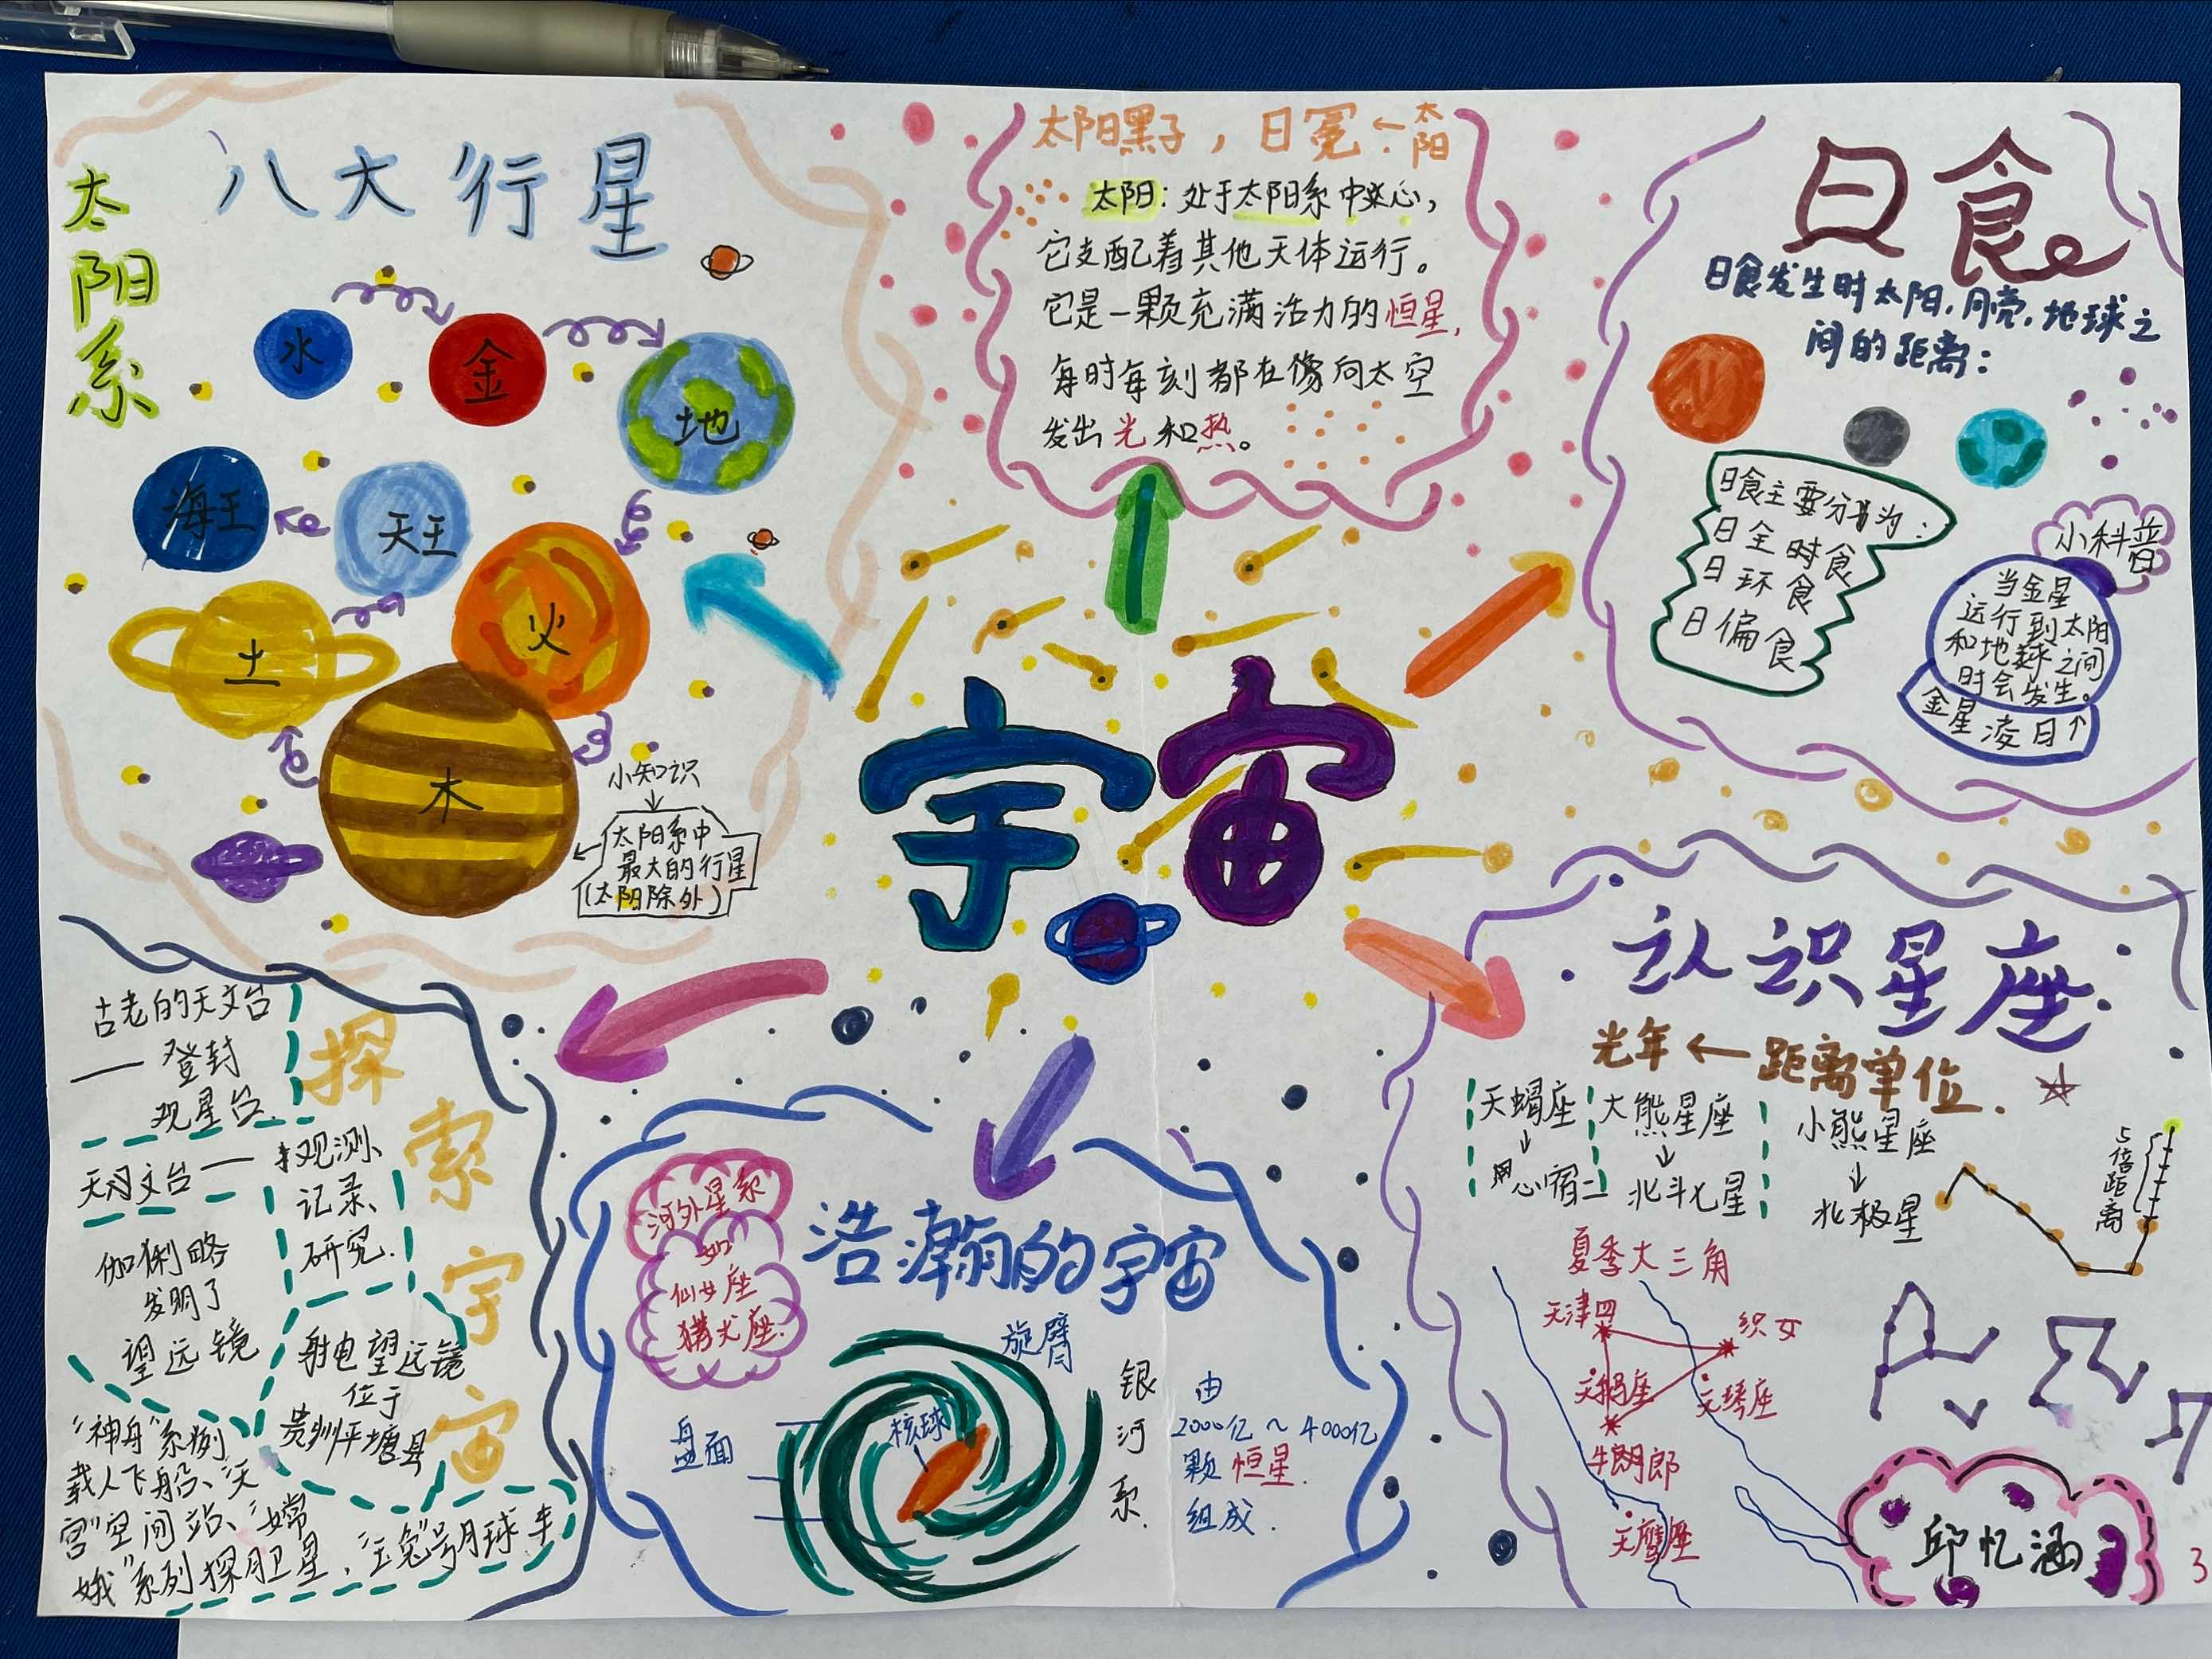 宇宙
太阳系
八大行星
水
金
地
火
木
土
天王
海王
小知识
太阳系中
最大的行星
(太阳除外)
太阳黑子，日冕←太阳
太阳：处于太阳系中心，
它支配着其他天体运行。
它是一颗充满活力的恒星，
每时每刻都在向太空
发出光和热。
日食
日食发生时太阳，月亮，地球之
间的距离：
日食主要分为：
日全食
日环食
日偏食
小科普
当金星
运行到太阳
和地球之间
时会发生。
金星凌日↑
认识星座
光年←距离单位.
天蝎座
↓
心宿二
大熊星座
↓
北斗七星
小熊星座
↓
北极星
5倍距离
夏季大三角
天津四
织女
天鹅座
天琴座
牛郎
天鹰座
邱忆涵
3
浩瀚的宇宙
河外星系
如
仙女座
猎犬座.
旋臂
核球
盘面
银河系.
由
2000亿～4000亿
颗恒星.
组成.
探索宇宙
古老的天文台
——登封
观星台.
天文台——观测、
记录、
研究.
伽利略
发明了
望远镜
射电望远镜
位于
贵州平塘县
“神舟”系列
载人飞船、“天
宫”空间站、“嫦
娥”系列探月卫星，“玉兔”号月球车